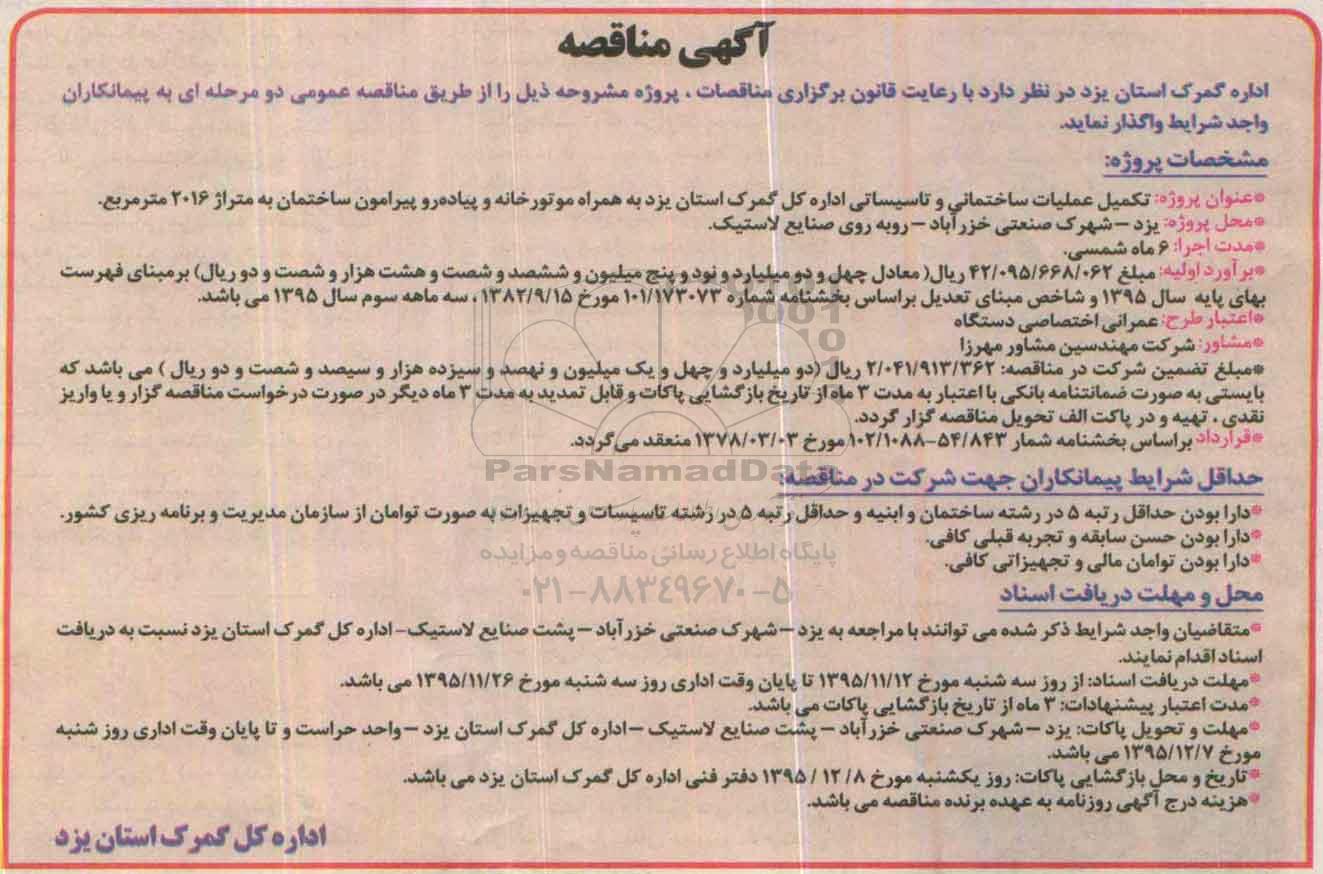 آگهی مناقصه
اداره گمرک استان یزد در نظر دارد با رعایت قانون برگزاری مناقصات ، پروژه مشروحه ذیل را از طریق مناقصه عمومی دو مرحله ای به پیمانکاران
واجد شرایط واگذار نماید.
مشخصات پروژه:
*عنوان پروژه: تکمیل عملیات ساختمانی و تاسیساتی اداره کل گمرک استان یزد به همراه موتورخانه و پیاده‌رو پیرامون ساختمان به متراژ ۲۰۱۶ مترمربع.
*محل پروژه: یزد – شهرک صنعتی خزرآباد – روبه روی صنایع لاستیک.
*مدت اجرا: ۶ ماه شمسی.
*برآورد اولیه: مبلغ ۴۲/۰۹۵/۶۶۸/۰۶۲ ریال( معادل چهل و دو میلیارد و نود و پنج میلیون و ششصد و شصت و هشت هزار و شصت و دو ریال) برمبنای فهرست
بهای پایه سال ۱۳۹۵ و شاخص مبنای تعدیل براساس بخشنامه شماره ۱۰۱/۱۷۳۰۷۳ مورخ ۱۳۸۲/۹/۱۵ ، سه ماهه سوم سال ۱۳۹۵ می باشد.
*اعتبار طرح: عمرانی اختصاصی دستگاه
*مشاور: شرکت مهندسین مشاور مهرزا
*مبلغ تضمین شرکت در مناقصه: ۲/۰۴۱/۹۱۳/۳۶۲ ریال (دو میلیارد و چهل و یک میلیون و نهصد و سیزده هزار و سیصد و شصت و دو ریال ) می باشد که
بایستی به صورت ضمانتنامه بانکی با اعتبار به مدت ۳ ماه از تاریخ بازگشایی پاکات و قابل تمدید به مدت ۳ ماه دیگر در صورت درخواست مناقصه گزار و یا واریز
نقدی ، تهیه و در پاکت الف تحویل مناقصه گزار گردد.
*قرارداد براساس بخشنامه شمار ۵۴/۸۴۳-۱۰۲/۱۰۸۸ مورخ ۱۳۷۸/۰۳/۰۳ منعقد می‌گردد.
حداقل شرایط پیمانکاران جهت شرکت در مناقصه:
*دارا بودن حداقل رتبه ۵ در رشته ساختمان و ابنیه و حداقل رتبه ۵ در رشته تاسیسات و تجهیزات به صورت توامان از سازمان مدیریت و برنامه ریزی کشور.
*دارا بودن حسن سابقه و تجربه قبلی کافی.
*دارا بودن توامان مالی و تجهیزاتی کافی.
محل و مهلت دریافت اسناد
*متقاضیان واجد شرایط ذکر شده می توانند با مراجعه به یزد – شهرک صنعتی خزرآباد – پشت صنایع لاستیک- اداره کل گمرک استان یزد نسبت به دریافت
اسناد اقدام نمایند.
*مهلت دریافت اسناد: از روز سه شنبه مورخ ۱۳۹۵/۱۱/۱۲ تا پایان وقت اداری روز سه شنبه مورخ ۱۳۹۵/۱۱/۲۶ می باشد.
*مدت اعتبار پیشنهادات: ۳ ماه از تاریخ بازگشایی پاکات می باشد.
*مهلت و تحویل پاکات: یزد – شهرک صنعتی خزرآباد – پشت صنایع لاستیک – اداره کل گمرک استان یزد – واحد حراست و تا پایان وقت اداری روز شنبه
مورخ ۱۳۹۵/۱۲/۷ می باشد.
*تاریخ و محل بازگشایی پاکات: روز یکشنبه مورخ ۸/ ۱۲ / ۱۳۹۵ دفتر فنی اداره کل گمرک استان یزد می باشد.
*هزینه درج آگهی روزنامه به عهده برنده مناقصه می باشد.
اداره کل گمرک استان یزد
ParsNamadData
پایگاه اطلاع رسانی مناقصه و مزایده
۰۲۱-۸۸۳۴۹۶۷۰-۵